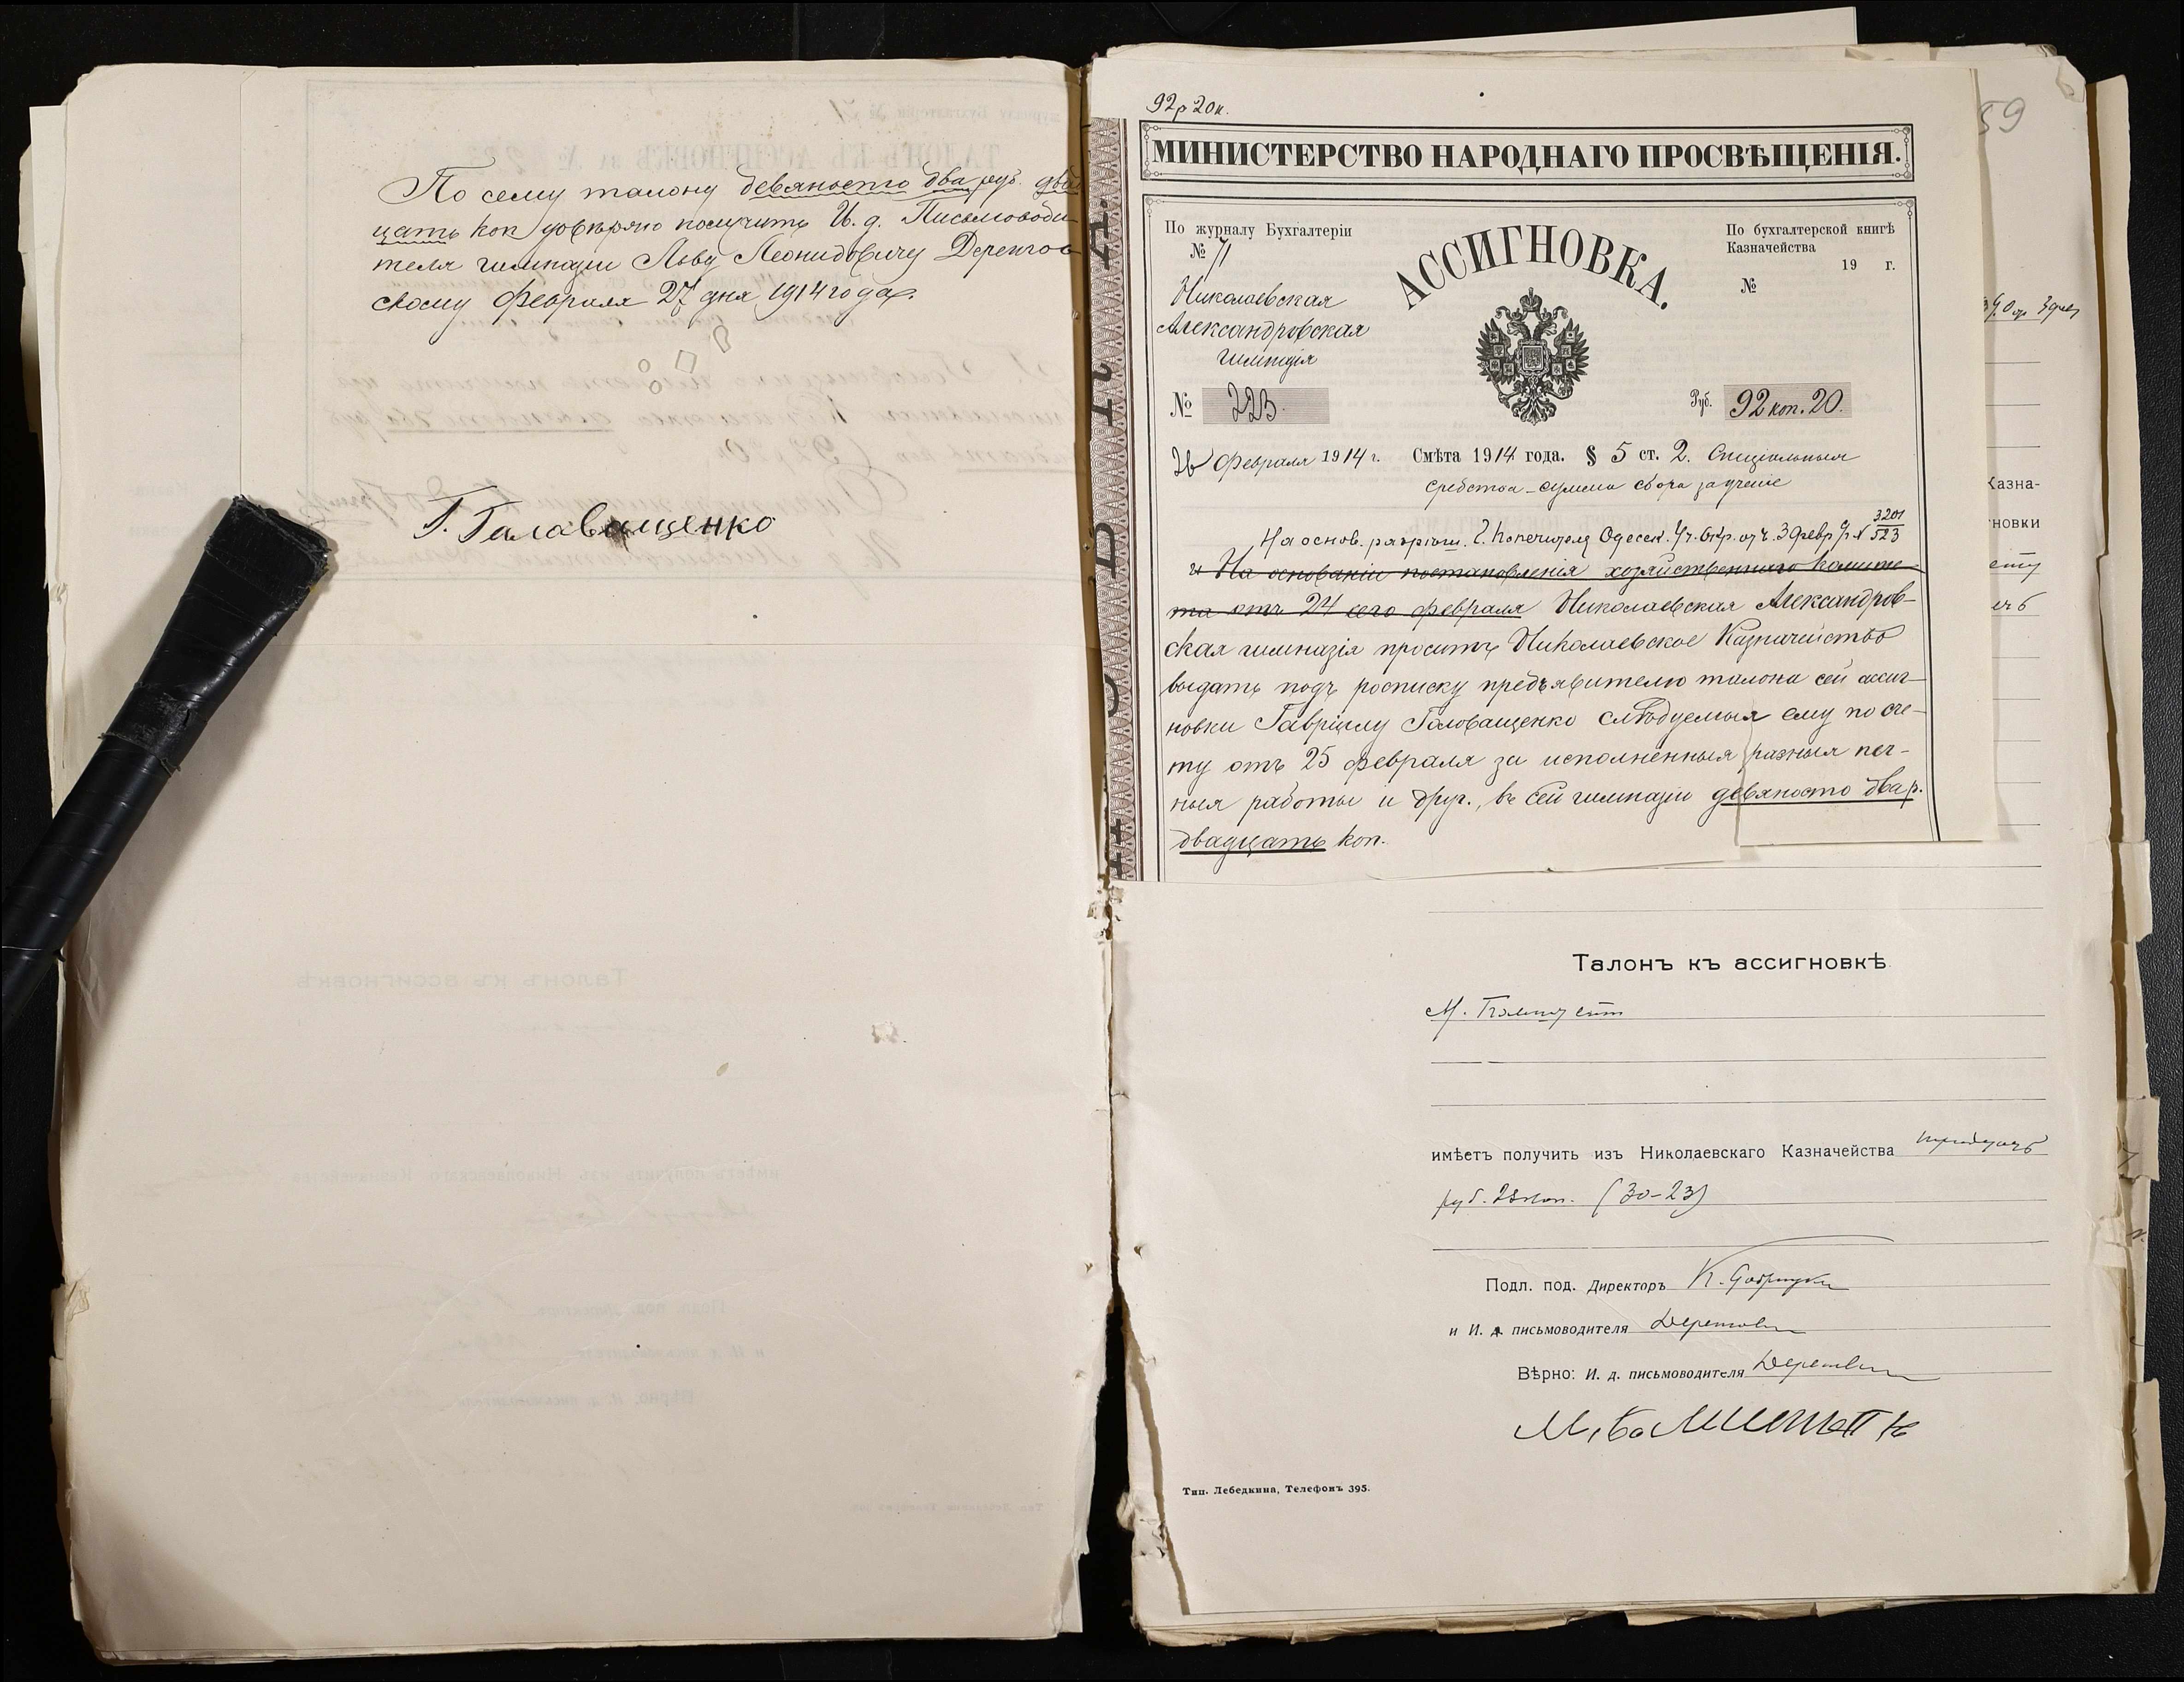 По сему талону девяносто два руб. два
цать коп довѣряю получить И. д. Письмоводи
теля гимназіи Льву Леонидовичу Деренгов
скому февраля 27 дня 1914 года.
Г. Галаващенко
92 р 20 к.
МИНИСТЕРСТВО НАРОДНАГО ПРОСВѢЩЕНІЯ.
По журналу Бухгалтеріи
№ 71
Николаевская
Александровская
гимназія
№ 223.
АССИГНОВКА.
По бухгалтерской книгѣ
Казначейства
19 г.
№
Руб. 92 коп. 20.
26 февраля 1914 г. Смѣта 1914 года. § 5 ст. 2. Спеціальныя
средства - суммы сбора за ученіе
На основ. разрѣш. Г. Попечителя Одесск. Уч. Окр. отъ 3 февр № 3201/523
и На основаніи постановленія хозяйственнаго Комите-
та отъ 24 сего февраля Николаевская Александров-
ская гимназія проситъ Николаевское Казначейство
выдать подъ росписку предъявителю талона сей ассиг-
новки Гавріилу Головащенко слѣдуемыя ему по сче-
ту отъ 25 февраля за исполненныя разныя печ-
ныя работы и друг., въ сей гимназіи девяносто два р.
двадцать коп.
59
Казна-
новки
Талонъ къ ассигновкѣ
имѣетъ получить изъ Николаевскаго Казначейства тридцать
руб. 23 коп. (30-23)
Подл. под. Директоръ
и И. д. письмоводителя
Вѣрно: И. д. письмоводителя
Тип. Лебедкина, Телефонъ 395.